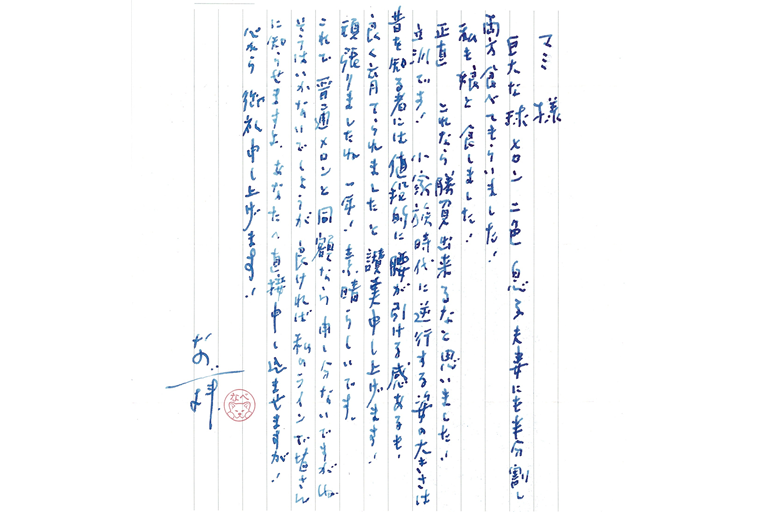 マミ 様
巨大な 球 メロン 二色 息子夫妻にも半分割し
両方食べてもらいました!
私も娘と 食しました!
正直 これなら勝負出来るなと思いました!
立派です! 小家族時代に逆行する姿の大きさは
昔を知る者には値段的に腰が引ける感あるも、
良く育てられましたと 讃美申し上げます!
頑張りましたね 一年! 素晴らしいです。
これで 普通メロンと同額なら申し分ないですがね
そうはいかないでしょうが 良ければ私のラインで皆さん
に知らせますよ、あなたへ直接申し込ませますが!
心から 御礼申し上げます!
なべ 拝
なべ